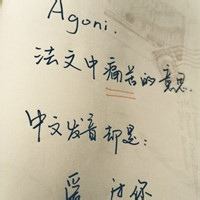 Agoni.
法文中痛苦的意思.
中文发音却是：
爱 过你